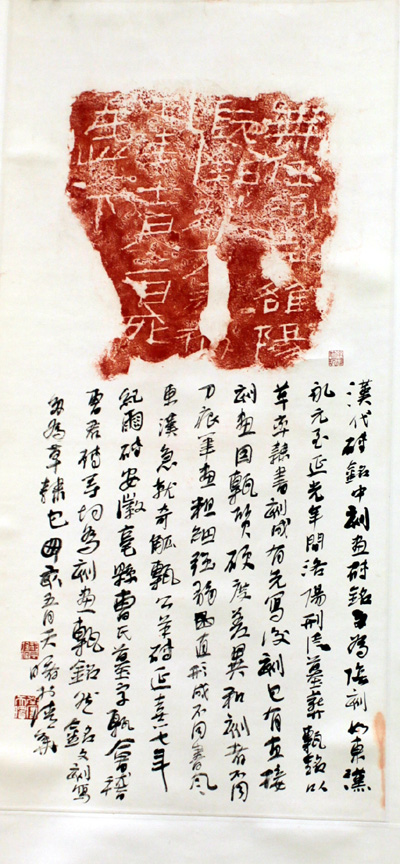 雒陽
死
在此下
漢代磚銘中刻画磚銘多為陰刻如東漢
永元至延光年間洛陽刑徒墓葬甎銘以
草率隸書刻成有先寫後刻也有直接
刻画因甎質硬度差異和刻者不同
刀痕筆画粗細強弱曲直形成不同書風
東漢急就奇觚甎公羊磚延熹七年
紀雨磚安徽亳縣曹氏墓字甎會稽
曹君磚等均為刻画甎銘然銘文刻寫
多為草隸也 五月天